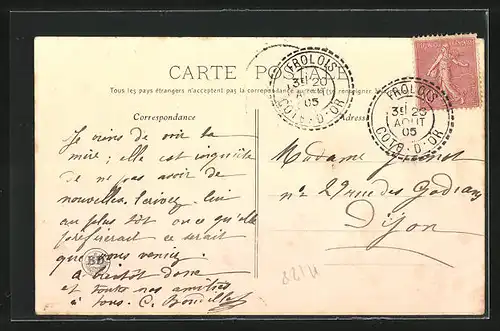 CARTE POSTALE
Tous les pays étrangers n'acceptent pas la correspondance au recto (se renseigner
Correspondance
Adresse
FROLOIS
3E 20
AOUT
05
COTE-D'OR
FROLOIS
3E 20
AOUT
05
COTE-D'OR
Je viens de voir la
mère ; elle est inquiète
de ne pas avoir de
nouvelles, écrivez lui
au plus tôt ou ce qu'elle
préfèrerait ce serait
que vous veniez.
à bientôt donc
et toutes nos amitiés
à tous. C.
Madame
n° 29 rue des Godrans
Dijon
BD